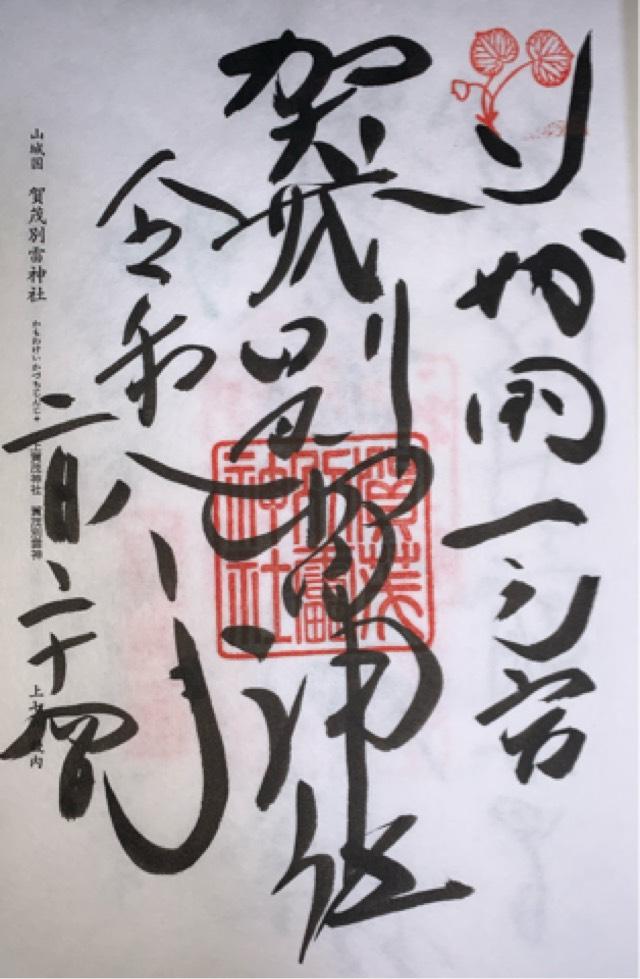 山城國一之宮
賀茂別雷神社
賀茂別雷神社
令和二年八月二十四日
山城国 賀茂別雷神社 かもわけいかづちじんじゃ 上賀茂神社 賀茂別雷神 上七社 畿内